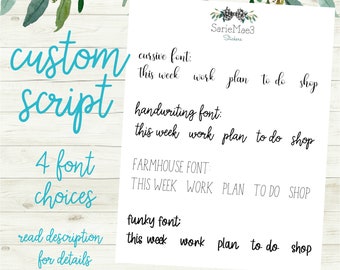 custom
script
4 font
choices
read description
for details
SarieMae3
Stickers
cursive font:
this week work plan to do shop
handwriting font:
this week work plan to do shop
FARMHOUSE FONT
THIS WEEK WORK PLAN TO DO SHOP
funky font:
this week work plan to do shop